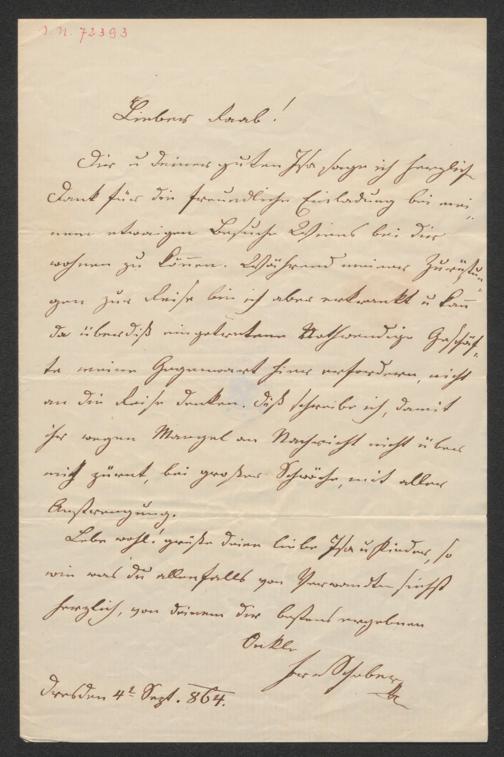 J. N. 72393
Lieber Raab!
Dir u deiner guten Isa sage ich herzlich
Dank für die freundliche Einladung bei mei-
nem etwaigen Besuche Wiens bei dir
wohnen zu können. Während meiner Zurüstun-
gen zur Reise bin ich aber erkrankt u kann
da überdiß eingetretene Nothwendige Geschäf-
te meine Gegenwart hier erfordern, nicht
an die Reise denken. Diß schreibe ich, damit
ihr wegen Mangel an Nachricht nicht über
mich zürnt, bei großer Schwäche, mit aller
Anstrengung.
Lebe wohl! grüße deine liebe Isa u Kinder, so
wie was du allenfalls von Verwandten siehst
herzlich, von deinem dir bestens ergebenen
Onkle
Schober
Dresden 4t Sept. 864.